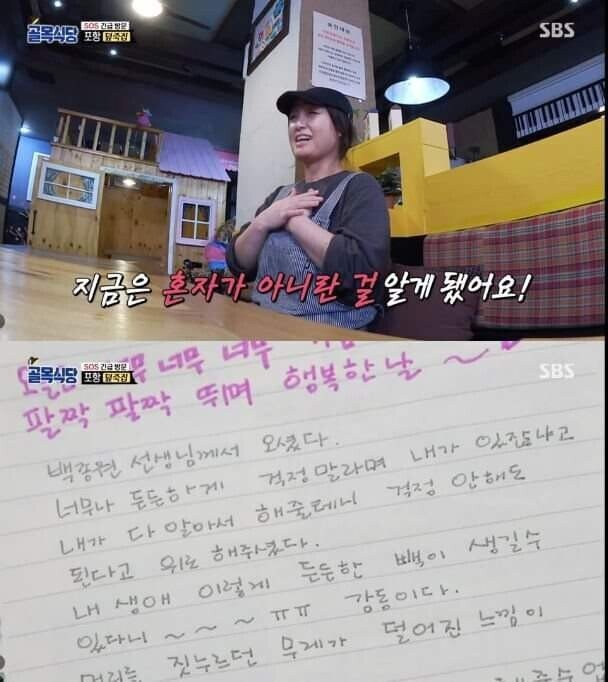 골목식당
SOS 긴급 방문
포항
SBS
지금은 혼자가 아니란 걸 알게 됐어요!
골목식당
SOS 긴급 방문
포항
SBS
너무 너무 너무
팔짝 팔짝 뛰며 행복한 날 ~
백종원 선생님께서 오셨다.
너무나 든든하게 걱정말라며 내가 있잖냐고
내가 다 알아서 해줄테니 걱정 안해도
된다고 위로 해주셨다.
내 생애 이렇게 든든한 빽이 생길수
있다니 ~ ~ ~ ㅠㅠ 감동이다.
머리를 짓누르던 무게가 덜어진 느낌이